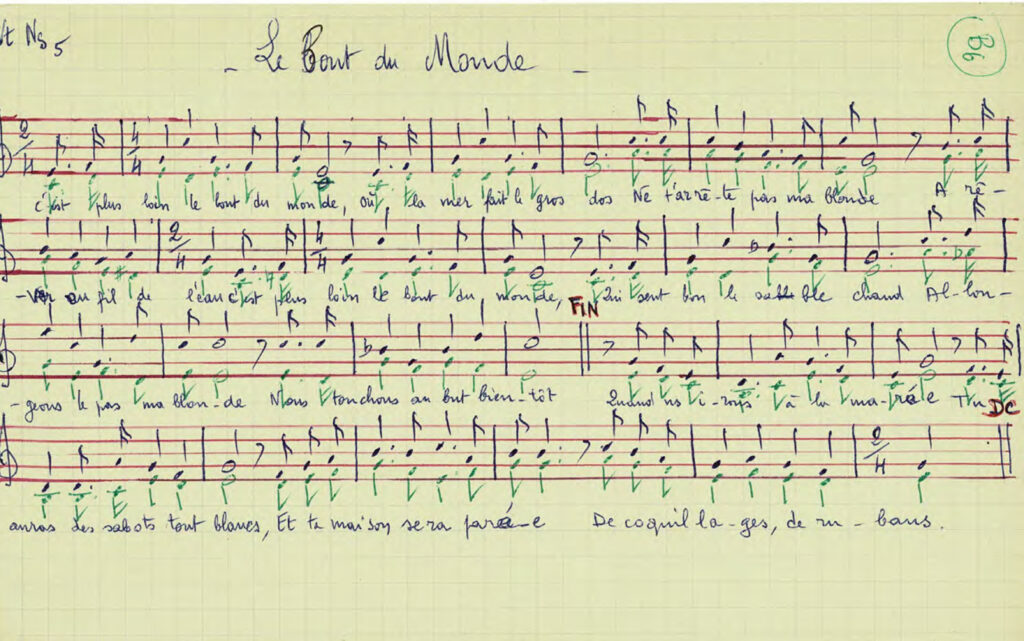 Ns 5
- Le Bout du Monde -
B6
2/4 4/4
c'est plus loin le bout du monde, où la mer fait le gros dos Ne t'arrê-te pas ma blonde A rê-
2/4 4/4
-ver au fil de l'eau c'est plus loin le bout du monde, Qui sent bon le sable chaud Al-lon-
FIN
-geons le pas ma blon-de Nous touchons au but bien-tôt Quand ns i-rons à la ma-rée Tu
DC
2/4
auras des sabots tout blancs, Et ta maison sera paré-e De coquil la-ges, de ru-bans.